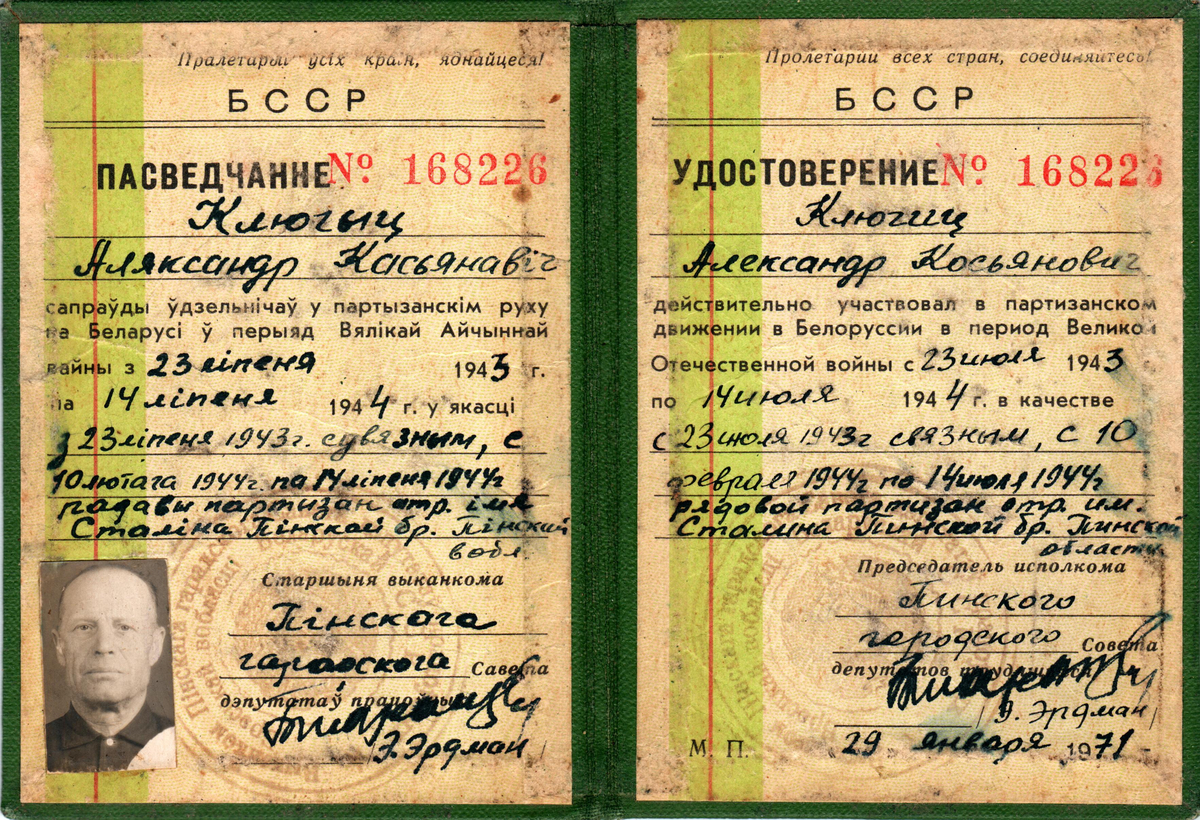 Пралетарыі ўсіх краін, яднайцеся!
БССР
ПАСВЕДЧАННЕ № 168226
Ключыц
Аляксандр Касьянавіч
сапраўды ўдзельнічаў у партызанскім руху
на Беларусі ў перыяд Вялікай Айчыннай
вайны з 23 ліпеня 1943 г.
па 14 ліпеня 1944 г. у якасці
з 23 ліпеня 1943г. сувязным, с
10 лютага 1944г. па 14 ліпеня 1944г
радавы партизан отр. імя
Сталіна Пінской бр. Пінский
вобл.
Старшыня выканкома
Пінскага
гарадского Савета
дэпутатаў працоўных
Э. Эрдман
Пролетарии всех стран, соединяйтесь!
БССР
УДОСТОВЕРЕНИЕ № 168226
Ключиц
Александр Косьянович
действительно участвовал в партизанском
движении в Белоруссии в период Великой
Отечественной войны с 23 июля 1943
по 14 июля 1944 г. в качестве
с 23 июля 1943г связным, с 10
февраля 1944г по 14 июля 1944г
рядовой партизан отр. им.
Сталина Пинской бр. Пинской
области
Председатель исполкома
Пинского
городского Совета
депутатов трудящихся
Э. Эрдман
М. П. 29 января 1971 г.